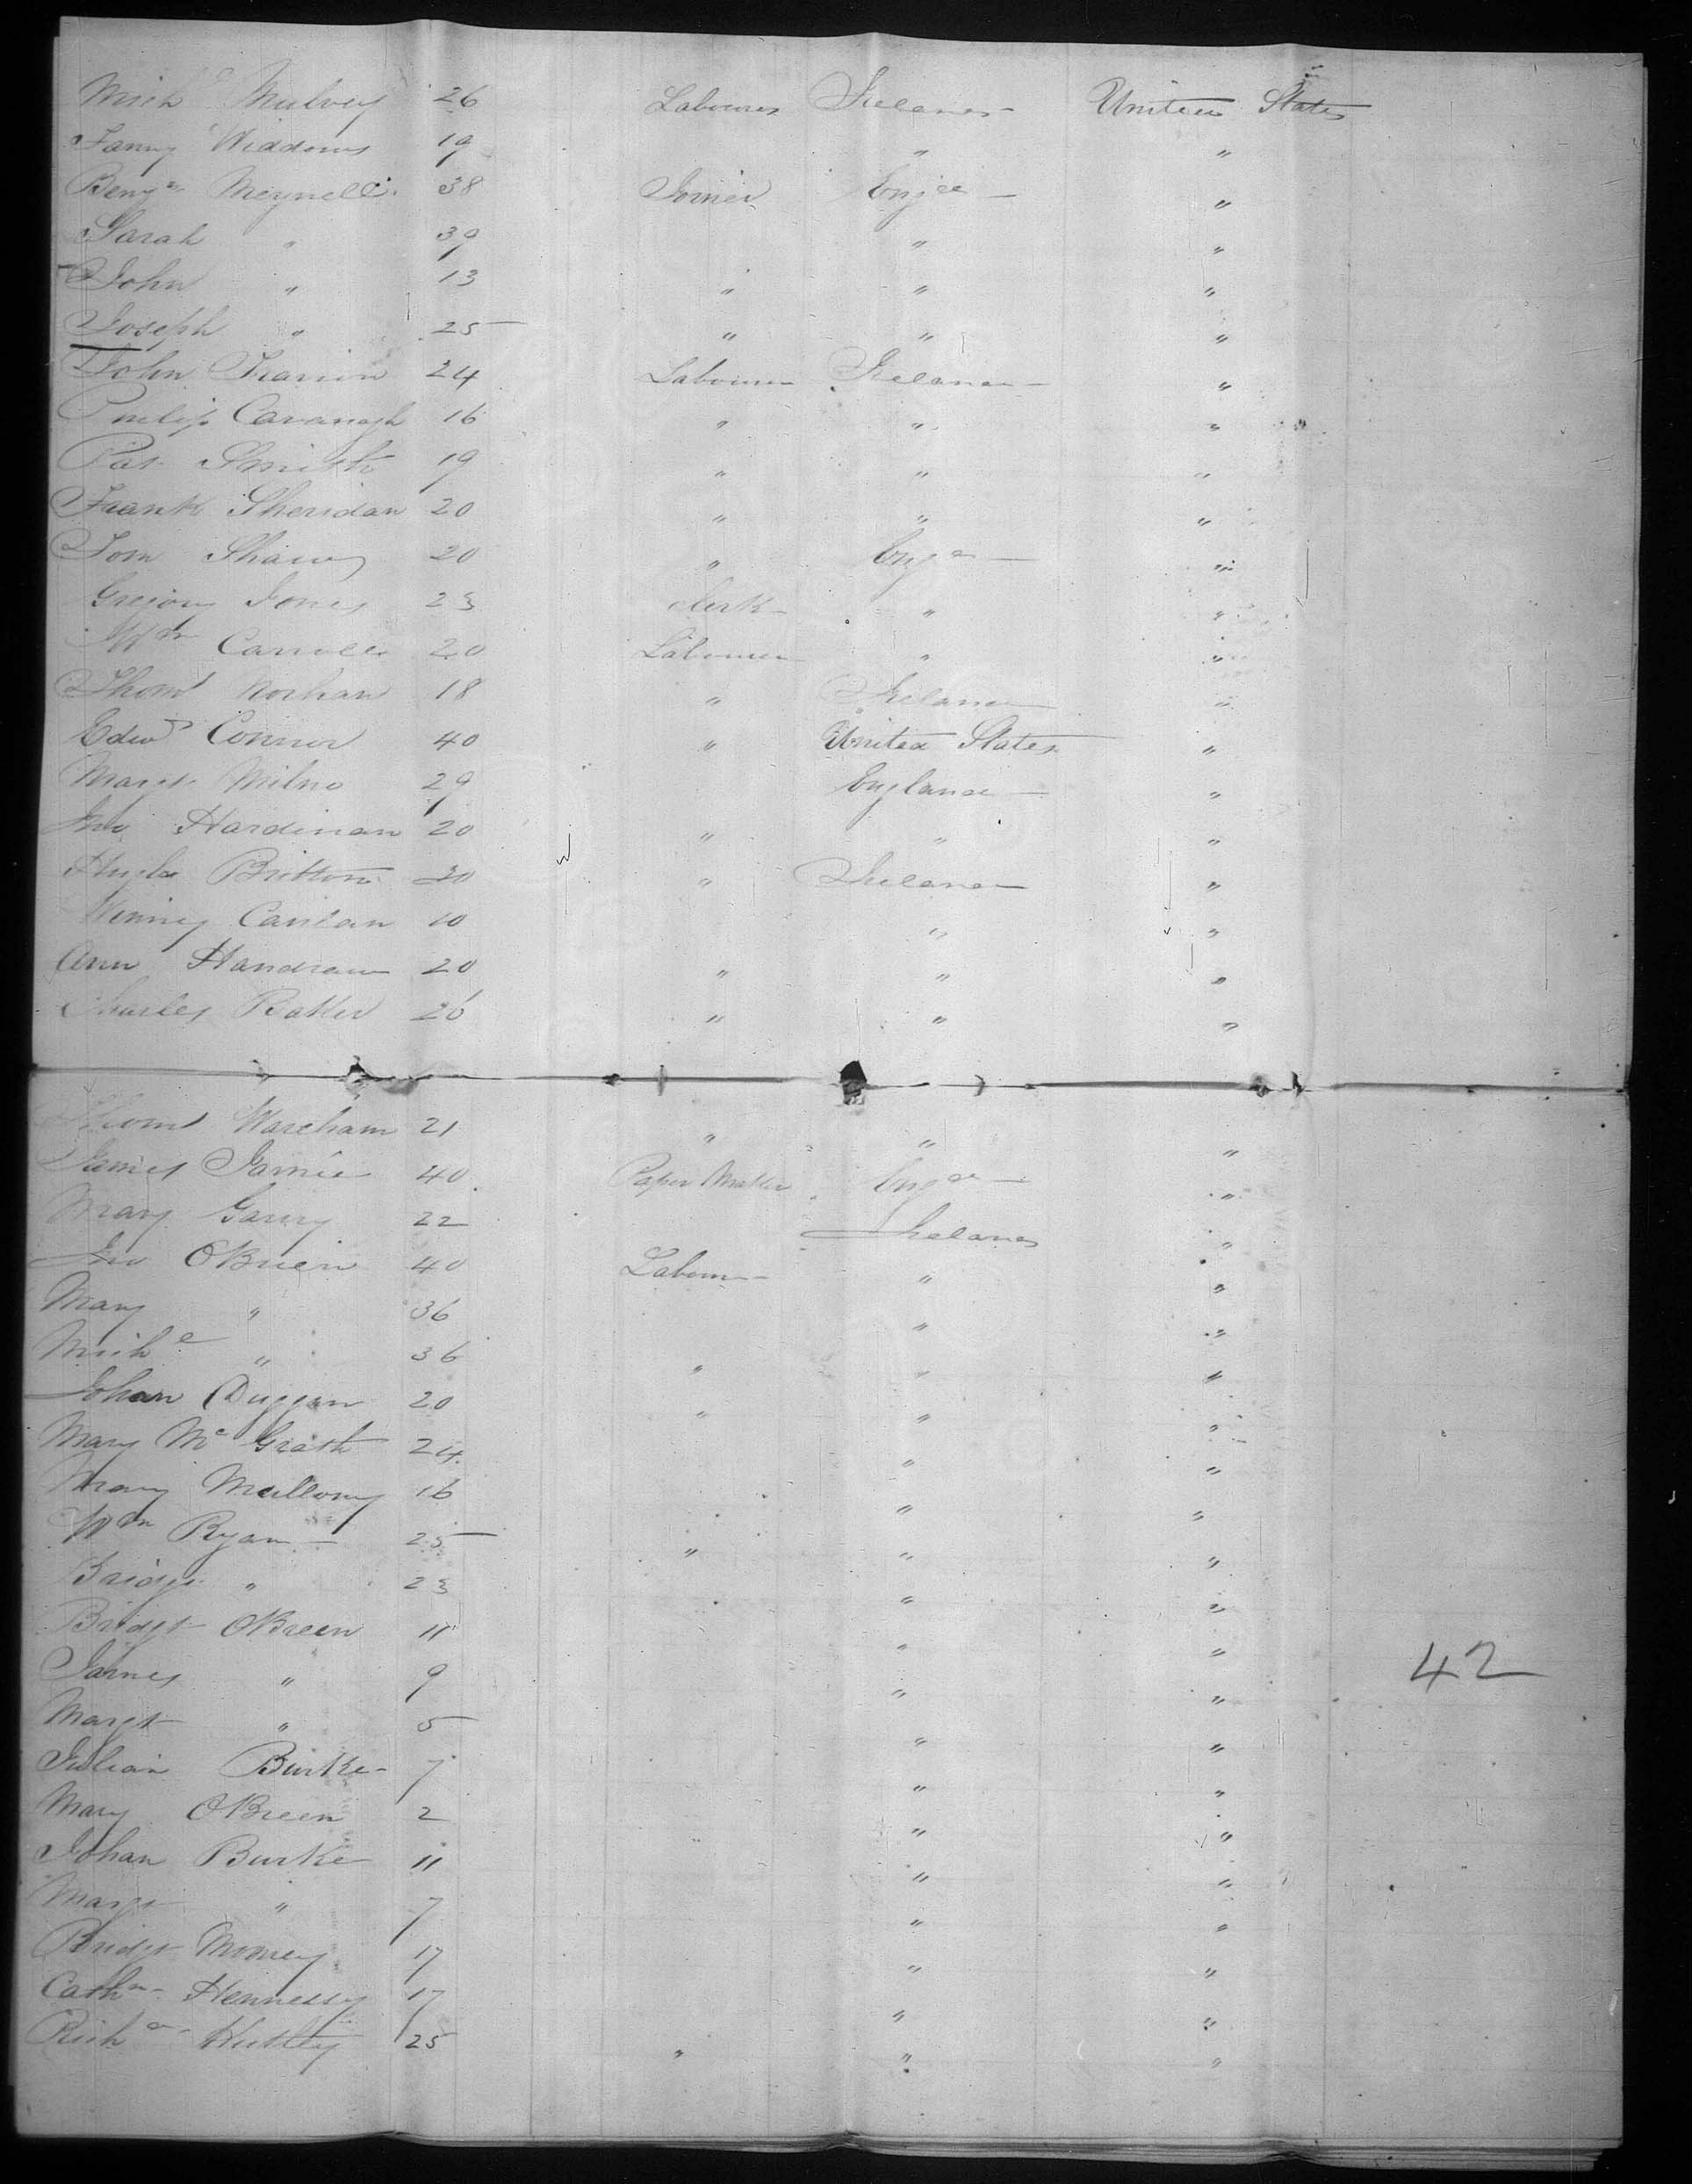 Mich l Mulvey 26 Labourer Ireland United States
Fanny Widdows 19 " "
Benjn Meynell 38 Joiner Engd "
Sarah " 39 " "
John " 13 " " "
Joseph " 25 " " "
John 24 Labourer Ireland "
Philip Cavanagh 16 " " "
Pat Smith 19 " " "
Frank Sheridan 20 " " "
Tom Shaw 20 " Engd "
Gregory Jones 23 Clerk " "
Wm Carroll 20 Labourer " "
Thoms 18 " Ireland "
Edwd Connor 40 " United States "
Margt Milno 29 England "
Jno Hardiman 20 " " "
Hugh Britton 30 " Ireland "
Winney Canlan 10 " "
Ann 20 " " "
Charles Baker 26 " " "
Thoms Wareham 21 " " "
James 40 Paper Maker Engd "
Mary Garry 22 Ireland "
Jno OBrien 40 Labour "
Mary " 36 " "
Michl " 36 " " "
Johan Duggan 20 " " "
Mary McGrath 24 " "
Mary Mullony 16 " "
Wm Ryan 25 " " "
Bridgt " 23 " "
Bridgt OBreen 11 " "
James " 9 " "
Margt " 5 " "
Julian Burke 7 " "
Mary OBreen 2 " "
Johan Burke 11 " "
Margt " 7 " "
Bridgt 17 " "
Cathn Hennessy 17 " "
Richd 25 " " "
42